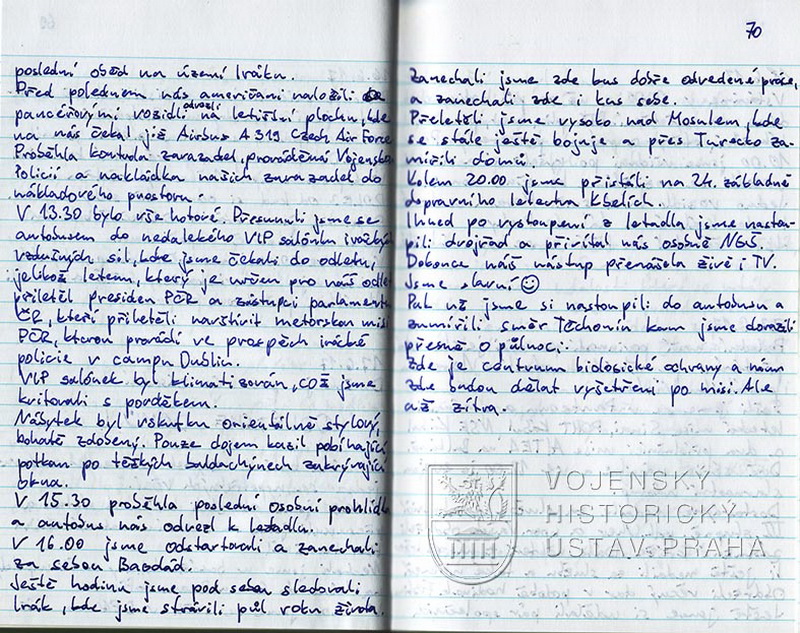 poslední oběd na území Iráku.
Před polednem nás američani naložili
pancéřovými vozidly odvezli na letištní plochu, kde
na nás čekal již Airbus A 319 Czech Air Force
Proběhla kontrola zavazadel, prováděná Vojenskou
Policií a nakládka našich zavazadel do
nákladového prostoru.
V 13.30 bylo vše hotové. Přesunuli jsme se
autobusem do nedalekého VIP salónku iráckých
vzdušných sil, kde jsme čekali do odletu,
jelikož letem, který je určen pro náš odlet
přiletěl president PČR a zástupci parlamentu
ČR, kteří přiletěli navštívit mentorskou misi
PČR, kterou provádí ve prospěch irácké
policie v campu Dublin.
VIP salónek byl klimatizován, což jsme
kvitovali s povděkem.
Nábytek byl vskutku orientálně stylový,
bohatě zdobený. Pouze dojem kazil pobíhající
potkan po těžkých baldachýnech zakrývající
okna.
V 15.30 proběhla poslední osobní prohlídka
a autobus nás odvezl k letadlu.
V 16.00 jsme odstartovali a zanechali
za sebou Bagdád.
Ještě hodinu jsme pod sebou sledovali
Irák, kde jsme strávili půl roku života.
70
Zanechali jsme zde kus dobře odvedené práce,
a zanechali zde i kus sebe.
Přeletěli jsme vysoko nad Mosulem, kde
se stále ještě bojuje a přes Turecko za-
mířili domů.
Kolem 20.00 jsme přistáli na 24. základně
dopravního letectva Kbelích.
Ihned po vystoupení z letadla jsme nastou-
pili dvojřad a přivítal nás osobně NGŠ.
Dokonce náš nástup přenášela živě i TV.
Jsme slavní ☺
Pak už jsme si nastoupili do autobusu a
zamířili směr Těchonín kam jsme dorazili
přesně o půlnoci.
Zde je centrum biologické ochrany a nám
zde budou dělat vyšetření po misi. Ale
až zítra.
VOJENSKÝ
HISTORICKÝ
ÚSTAV PRAHA